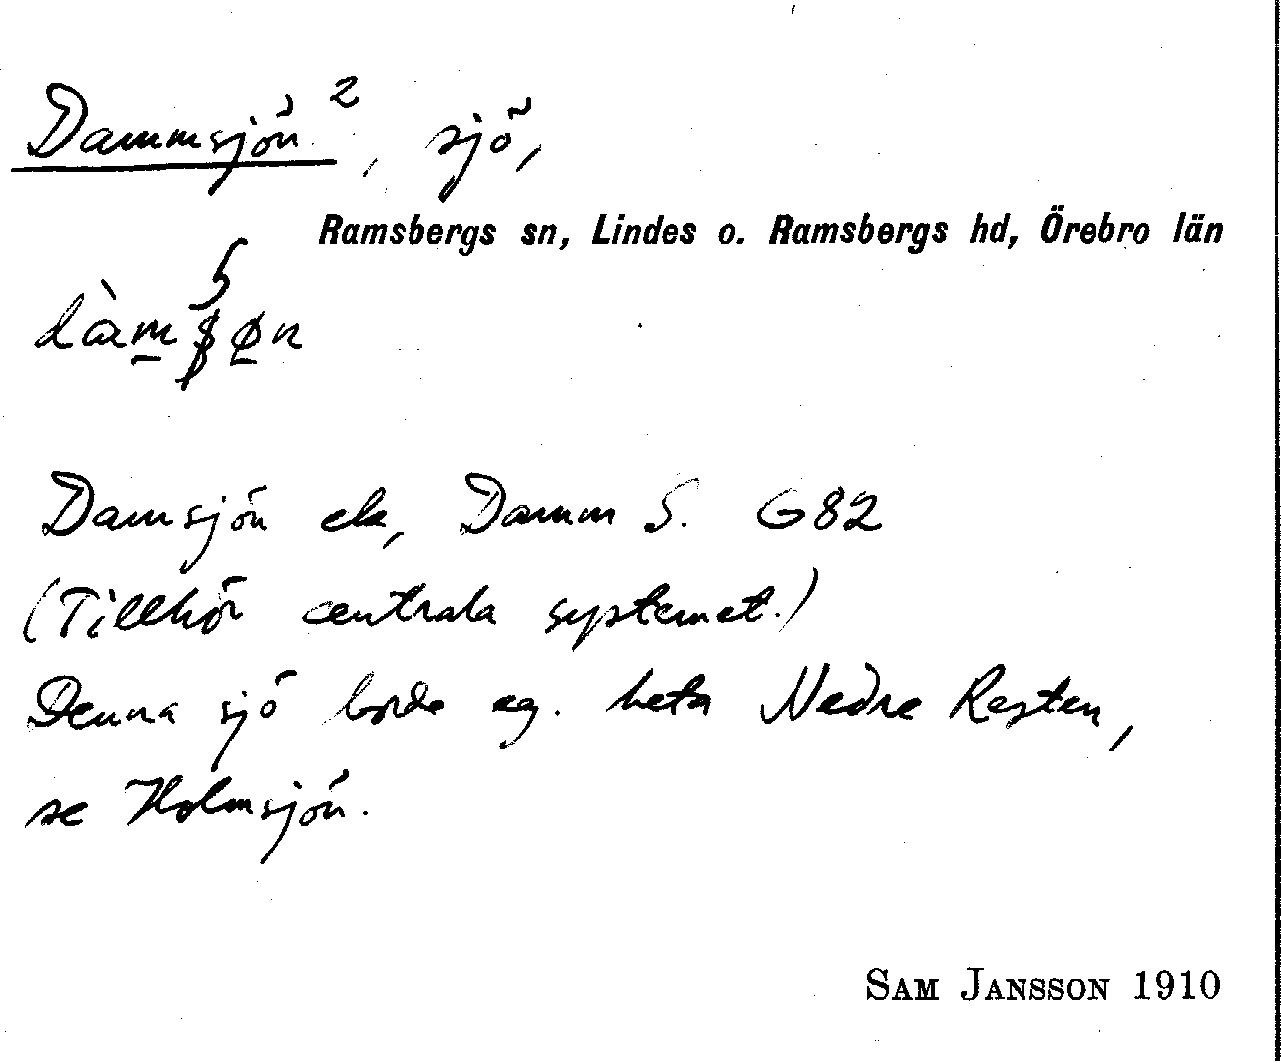 Dammsjön ², sjö,
Ramsbergs sn, Lindes o. Ramsbergs hd, Örebro län
Damsjön ek, Damm S. G82
(Tillhör centrala systemet.)
Denna sjö borde eg. heta Nedre Resten,
se Holmsjön.
SAM JANSSON 1910